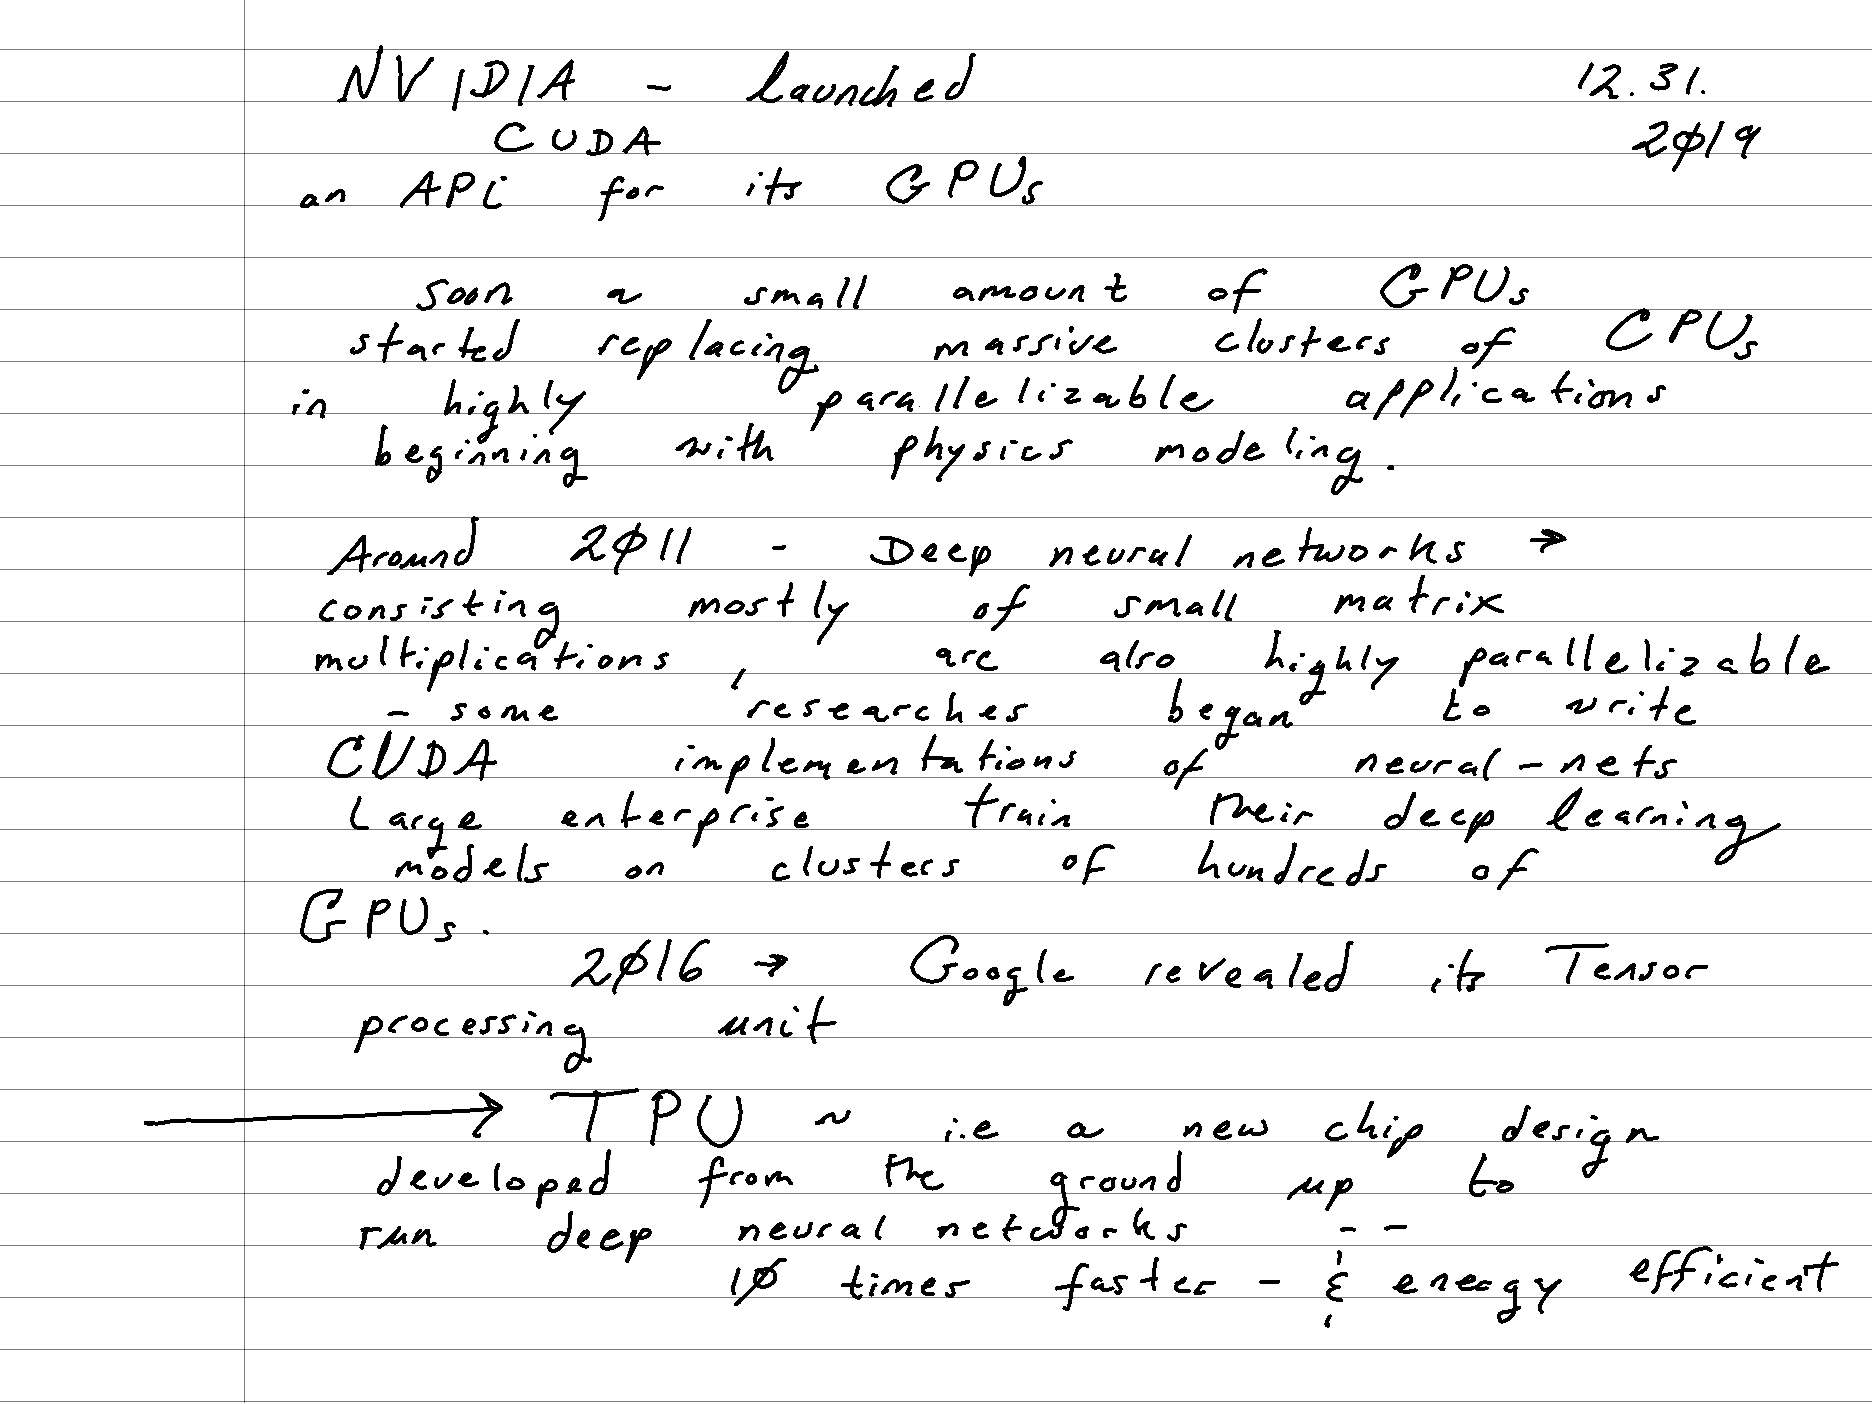 NVIDIA - launched 12.31.
CUDA 2019
an APi for its GPUs
soon a small amount of GPUs
started replacing massive clusters of CPUs
in highly parallelizable applications
beginning with physics modeling.
Around 2011 - Deep neural networks →
consisting mostly of small matrix
multiplications, are also highly parallelizable
- some researches began to write
CUDA implementations of neural-nets
Large enterprise train their deep learning
models on clusters of hundreds of
GPUs.
2016 → Google revealed its Tensor
processing unit
→ TPU ~ i.e a new chip design
developed from the ground up to
run deep neural networks --
10 times faster - & energy efficient